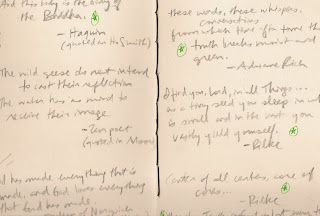 And this body is the body of
the Buddha.
- Haquin
(quoted in H. Smith)
The wild geese do not intend
to cast their reflection
The water has no mind to
receive their image
- Zen poet
(quoted in
God has made everything that is
made, and God loves everything
that God has made.
these words, these whispers,
conversations
from which time after time the
truth breaks moist and
green.
- Adrienne Rich
I find you, Lord, in all Things...
as a tiny seed you sleep in what
is small and in the vast you
vastly yield yourself.
- Rilke
Center of all centers, core of
cores...
- Rilke